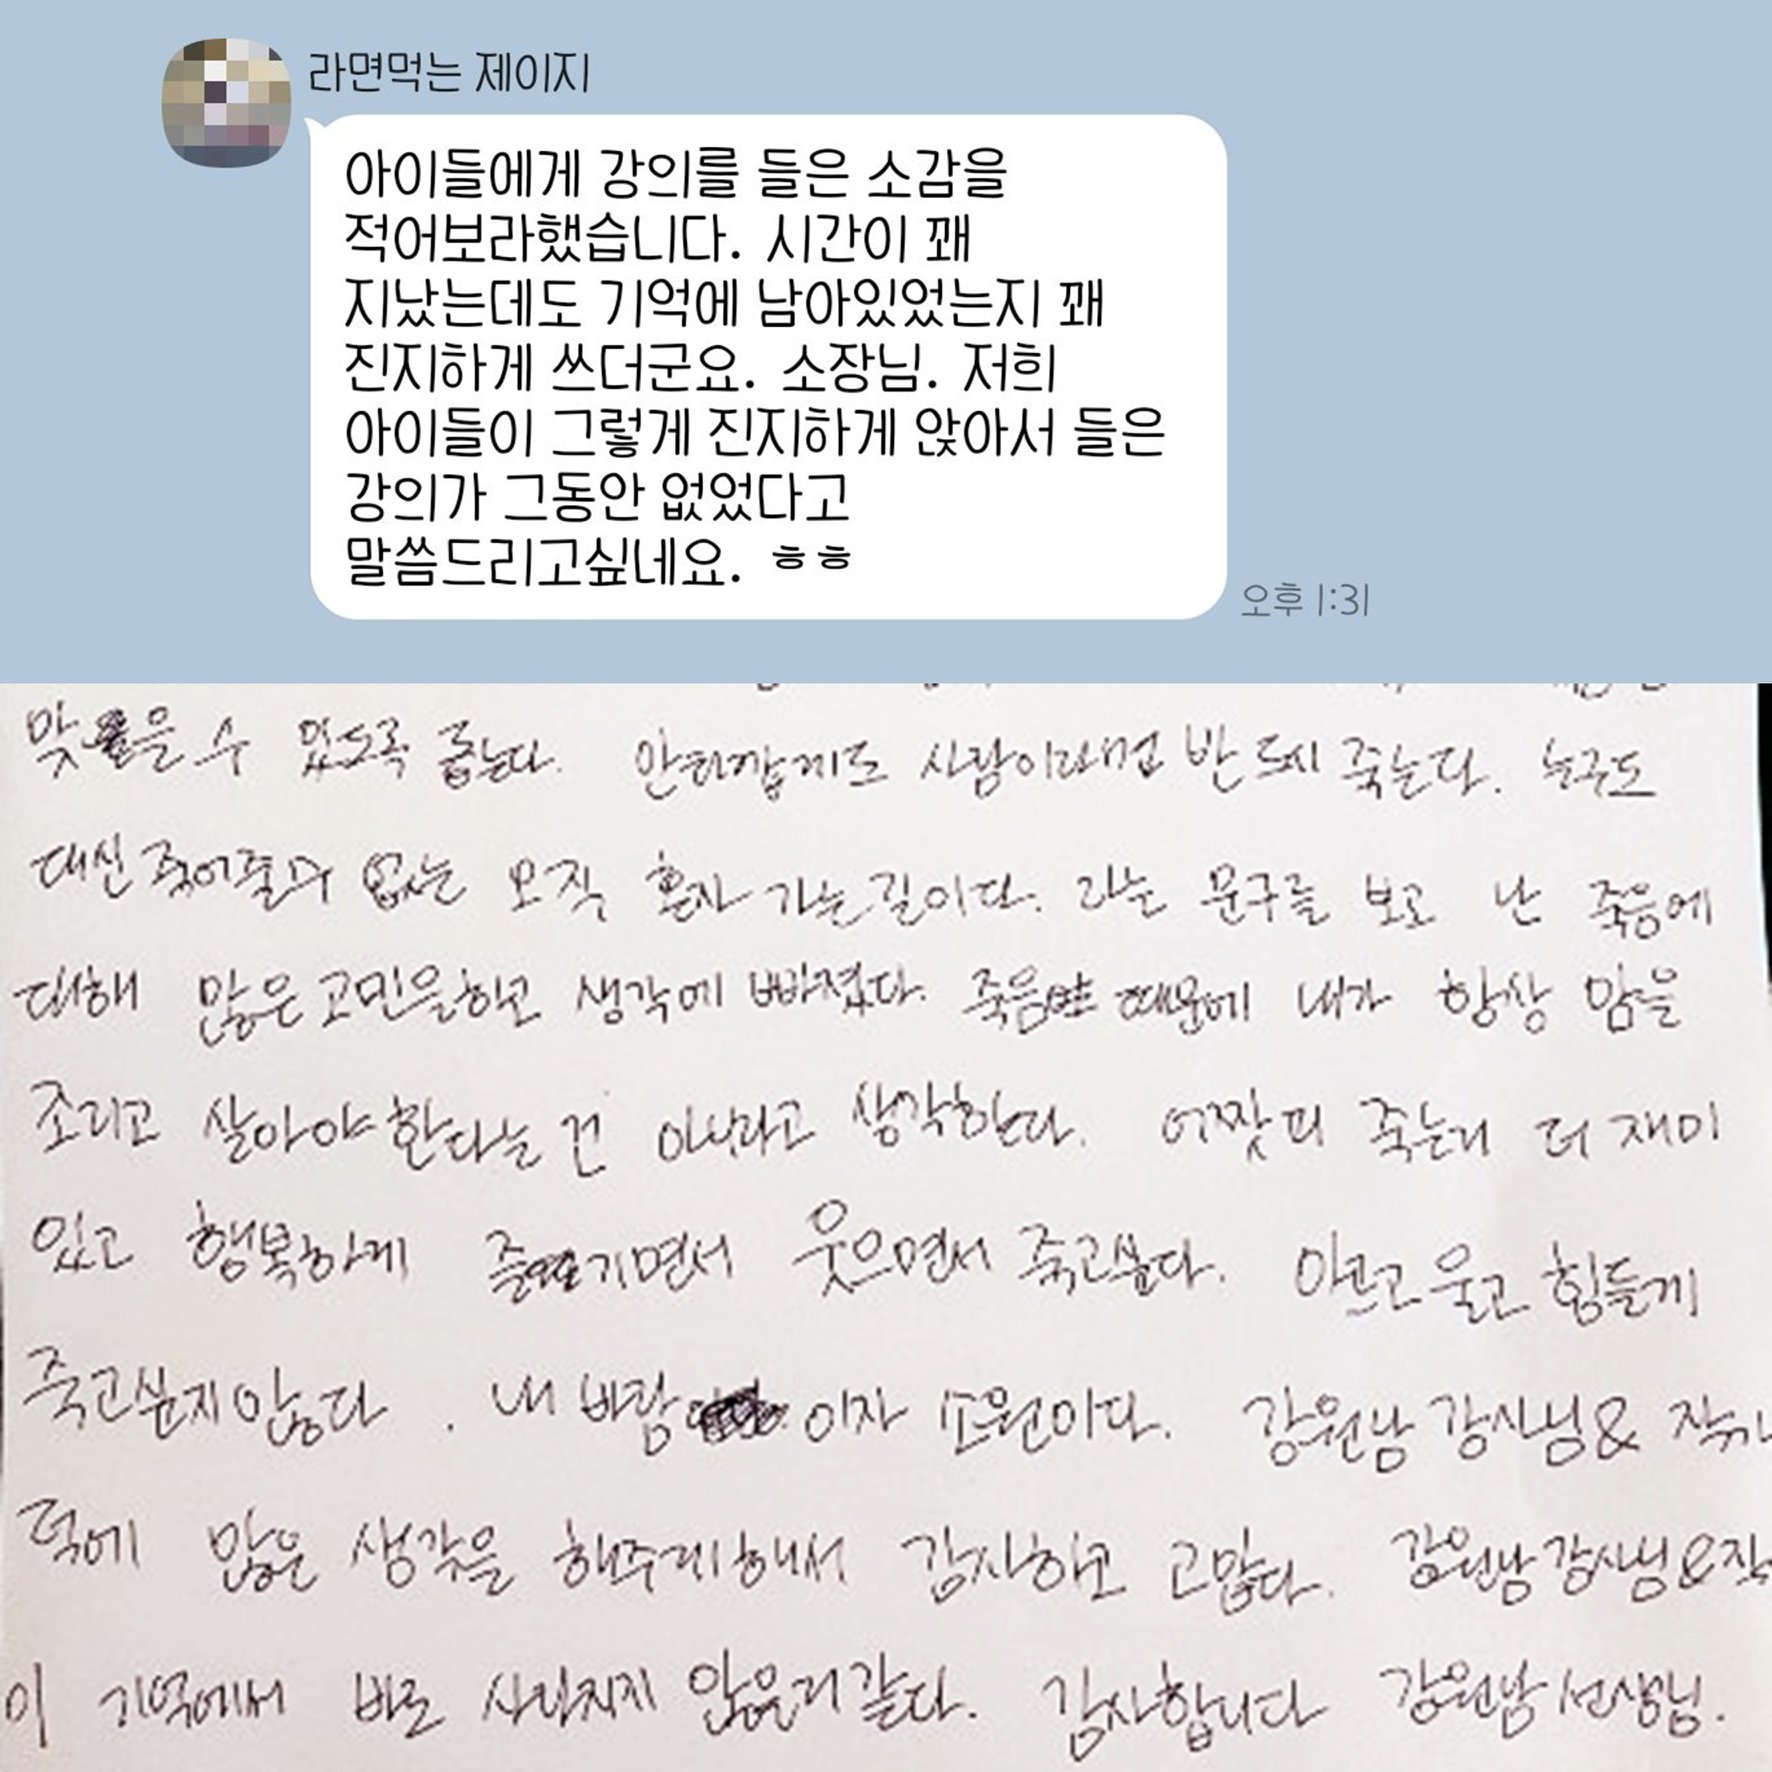 라면먹는 제이지
아이들에게 강의를 들은 소감을
적어보라했습니다. 시간이 꽤
지났는데도 기억에 남아있었는지 꽤
진지하게 쓰더군요. 소장님. 저희
아이들이 그렇게 진지하게 앉아서 들은
강의가 그동안 없었다고
말씀드리고싶네요. ㅎㅎ
오후 1:31
수 있도록 돕는다. 안타깝게도 사람이라면 반드시 죽는다. 누구도
대신 죽어줄수 없는 오직 혼자 가는길이다. 라는 문구를 보고 난 죽음에
대해 많은 고민을하고 생각에 빠졌다. 죽음 때문에 내가 항상 맘을
조리고 살아야한다는건 아니라고 생각한다. 어짯피 죽는거 더 재미
있고 행복하게 즐기면서 웃으면서 죽고싶다. 아프고 울고 힘들게
죽고싶지않다. 내 바람 이자 소원이다. 강원남 강사님&
덕에 많은 생각을 해주게해서 감사하고 고맙다. 강원남 강사님&
이 기억에서 바로 사라지지 않을거같다. 감사합니다 강원남 선생님.